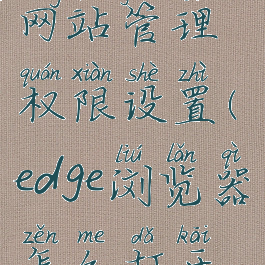 网站管理
quán xiàn shè zhì
权限设置(
liú lǎn qì
edge浏览器
zěn me dǎ kāi
怎么打开